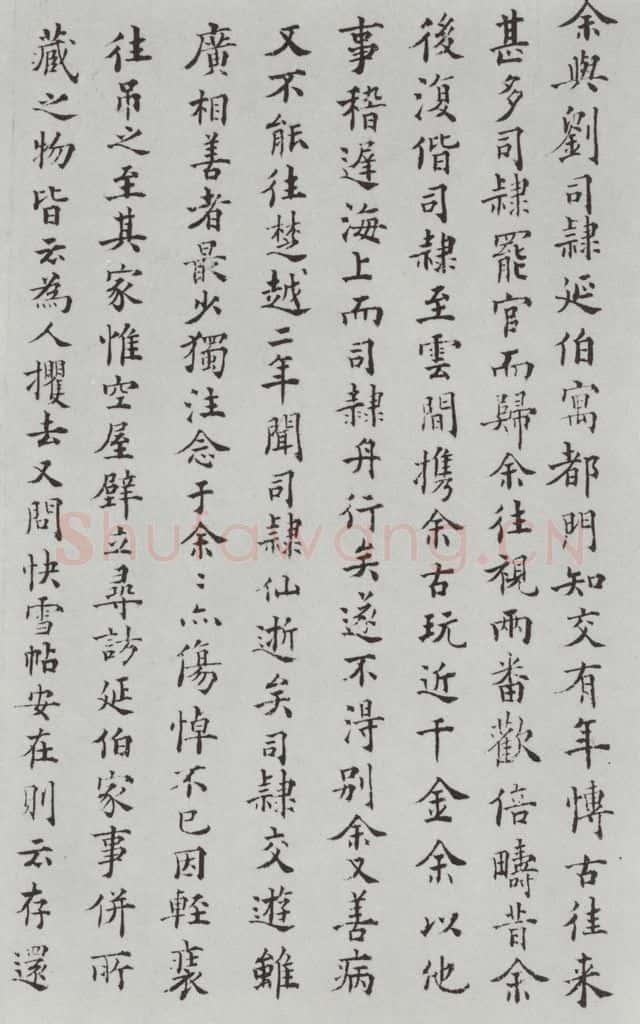 余與劉司隸延伯寓都門知交有年愽古往来
甚多司隸罷官而歸余往視兩番歡倍疇昔余
後復偕司隸至雲間携余古玩近千金余以他
事稽遲海上而司隸舟行矣遂不得别余又善病
又不能往楚越二年聞司隸仙逝矣司隸交遊雖
廣相善者最少獨注念于余〻亦傷悼不已因輕裘
往吊之至其家惟空屋壁立尋訪延伯家事併所
藏之物皆云為人攫去又問快雪帖安在則云存還
Shufawang.CN